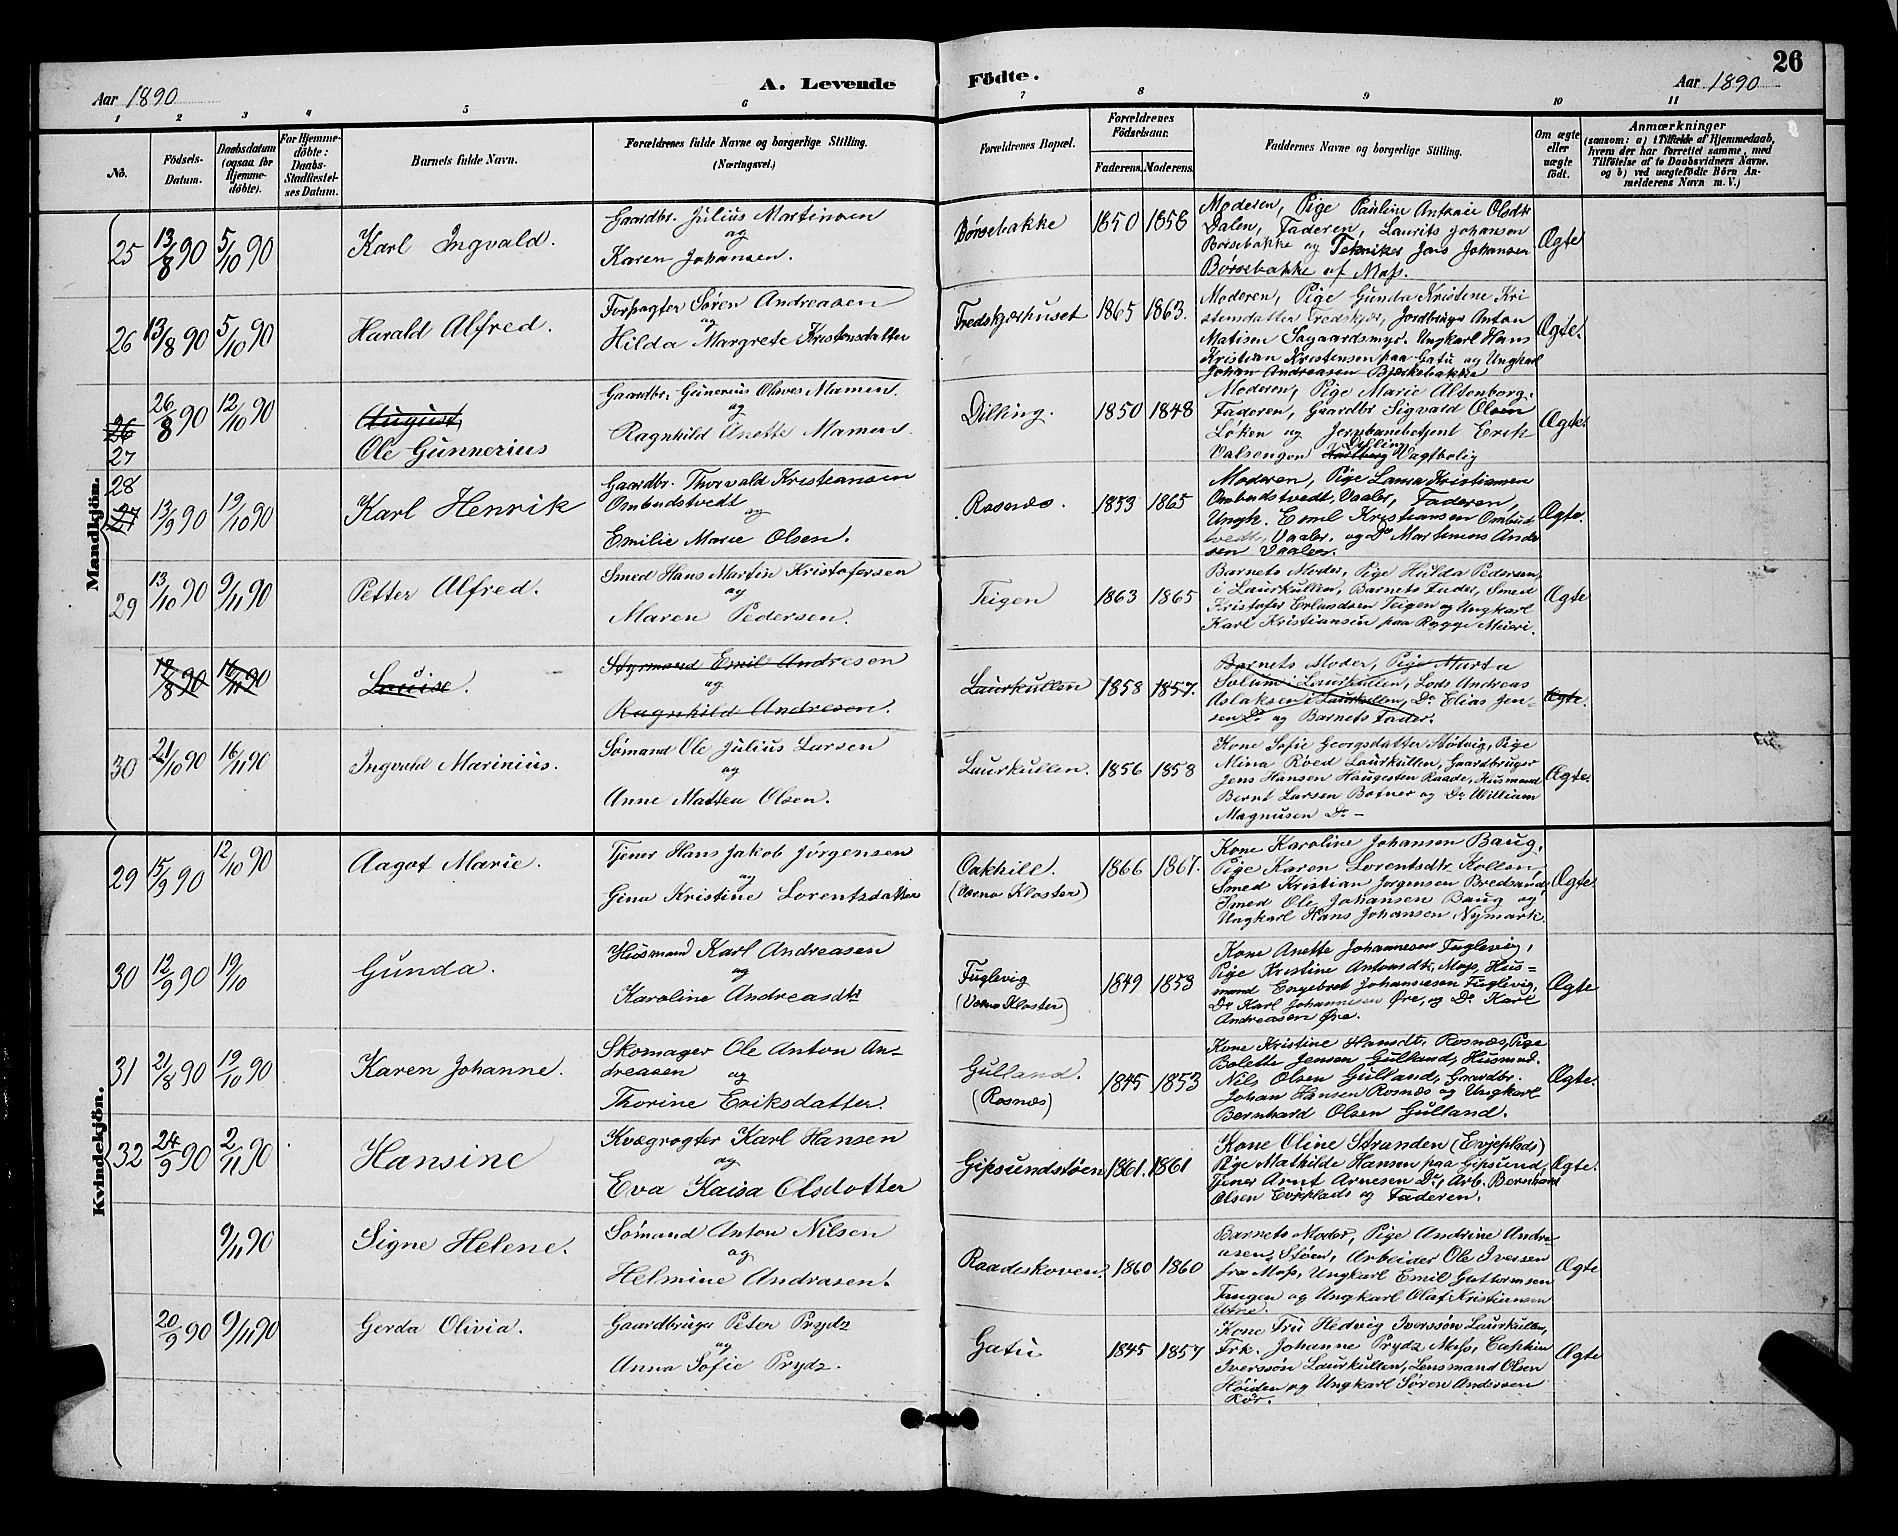 26
Aar 1890 A. Levende Födte. Aar 1890
1 2 3 4 5 6 7 8 9 10 11
No.
Födsels-Datum.
Daabsdatum (ogsaa for Hjemme-döbte).
For Hjemme-döbte: Daabs-Stadfæstel-ses Datum.
Barnets fulde Navn.
Forældrenes fulde Navne og borgerlige Stilling.
(Næringsvei.)
Forældrenes Bopæl.
Forældrenes Födselsaar.
Faderens. Moderens.
Faddernes Navne og borgerlige Stilling.
Om ægte eller uægte födt.
Anmærkninger
(saasom: a) i Tilfælde af Hjemmedaab,
hvem der har forrettet samme, med
Tilföielse af to Daabsvidners Navne,
og b) ved uægtefödte Börn An-
melderens Navn m. V.)
Mandkjön.
25 13/8 90 5/10 90 Karl Ingvald.
Gaardbr. Julius Martinsen
og
Karen Johansen.
Börsebakke 1850 1858
Moderen, Pige Pauline Antonie Olsdtr
Dalen, Faderen, Laurits Johansen
Börsebakke og Tekniker Jens Johansen
Börsebakke af Moss.
Ægte
26 13/8 90 5/10 90 Harald Alfred.
Forpagter Sören Andreasen
og
Hilda Margrete Kristensdatter
Fredskjærhuset 1865 1863.
Moderen, Pige Gunda Kristine Kri
stensdatter Fredskjær, Jordbruger Anton
Matisen Sagaardsmyr. Ungkarl Hans
Kristian Kristensen paa Gatu og Ungkarl
Johan Andreasen Bjerkebakke
Ægte.
26 27 26/8 90 12/10 90 August
Ole Gunnerius
Gaardbr. Gunerius Olsves Mamen.
og
Ragnhild Anette Mamen.
Dilling. 1850 1848
Moderen, Pige Marie Altenborg,
Faderen, Gaardbr Sigvard Olsen
Löken og Jernbanebetjent Erik
Valsengen Dilling Vagtbolig
Ægte.
28 27 13/9 90 19/10 90 Karl Henrik
Gaardbr. Thorvald Kristiansen
Ombudstvedt og
Emilie Marie Olsen.
Rosnæs. 1853 1865
Moderen, Pige Laura Kristiansen
Ombudstvedt, Vaaler, Faderen,
Ungk. Emil Kristiansen Ombud
tvedt, Vaaler, og Do Martinius Ande
sen Vaaler.
Ægte.
29 13/10 90 9/11 90 Petter Alfred.
Smed Hans Martin Kristofersen
og
Maren Pedersen.
Teigen 1863 1865
Barnets Moder, Pige Hulda Pedersen
i Laurkullen, Barnets Fader, Smed
Kristofer Erlandsen Teigen og Ungkarl
Karl Kristiansen paa Rygge Meieri.
Ægte
17/8 90 16/11 90 Louise.
Styrmand Emil Andresen
og
Ragnhild Andresen.
Laurkullen 1858 1857.
Barnets Moder, Pige Marta
Solum i Laurkullen, Lods Andreas
Aslaksen i Laurkullen, Do Elias Jen-
sen Do og Barnets Fader.
Ægte.
30 21/10 90 16/11 90 Ingvald Marinius.
Sömand Ole Julius Larsen
og
Anne Mattea Olsen.
Laurkullen. 1856 1858
Kone Sofie Georgsdatter Støtvig, Pige
Mina Röed Laurkullen, Gaardbruger
Jens Hansen Haugesten Raade, Husmand
Bernt Larsen Botner og Do William
Magnusen Do –
Ægte.
Kvindekjön.
29 15/9 90 12/10 90 Aagot Marie.
Tjener Hans Jakob Jörgensen
og
Gina Kristine Lorentsdatter
Oakhill.
(Værne Kloster)
1866 1867.
Kone Karoline Johansen Baug,
Pige Karen Lorentsdtr Kollen,
Smed Kristian Jörgensen Bredsand,
Smed Ole Johansen Baug og
Ungkarl Hans Johansen Nymark.
Ægte.
30 12/9 90 19/10 Gunda.
Husmand Karl Andreasen
og
Karoline Andreasdtr
Fuglevig
(Værne Kloster)
1849 1853
Kone Anette Johannesen Fuglevig,
Pige Kristine Antonsdtr, Moss, Hus=
mand Engebret Johannesen Fuglevig,
Do Karl Johannesen Öre, og Do Karl
Andreasen Öre.
Ægte
31 21/8 90 19/10 90 Karen Johanne.
Skomager Ole Anton An=
dreasen og
Thorine Eriksdatter.
Gulland.
(Rosnæs)
1845 1853
Kone Kristine Hansdtr, Rosnæs, Pige
Bolette Jensen Gulland, Husmand.
Nils Olsen Gulland, Gaardbr.
Johan Hansen Rosnæs og Ungkarl
Bernhard Olsen Gulland.
Ægte.
32 24/9 90 2/11 90 Hansine
Kvægrogter Karl Hansen
og
Eva Kaisa Olsdotter
Gipsundstöen 1861. 1861
Kone Oline Stranden (Evjeplads)
Pige Mathilde Hansen paa Gipsund,
Tjener Arnt Arnesen Do, Arb. Bernhard
Olsen Evjeplads og Faderen.
Ægte.
9/11 90 Signe Helene.
Sömand Anton Nilsen
og
Helmine Andrasen.
Raadeskoven. 1860 1860
Barnets Moder, Pige Andrine Andre
asen, Stöen, Arbeider Ole Iversen
fra Moss, Ungkarl Emil Guttormsen
Tangen og Ungkarl Olaf Kristiansen
Utne.
Ægte
20/9 90 9/11 90 Gerda Olivia.
Gaardbruger Peter Prydz
og
Anna Sofie Prydz.
Gatu 1845 1857
Kone Fru Hedvig Iverssön Laurkullen,
Frk. Johanne Prydz Moss, Captein
Iverssön Laurkullen, Lensmand Olsen
Höiden og Ungkarl Sören Andersen
Rör.
Ægte